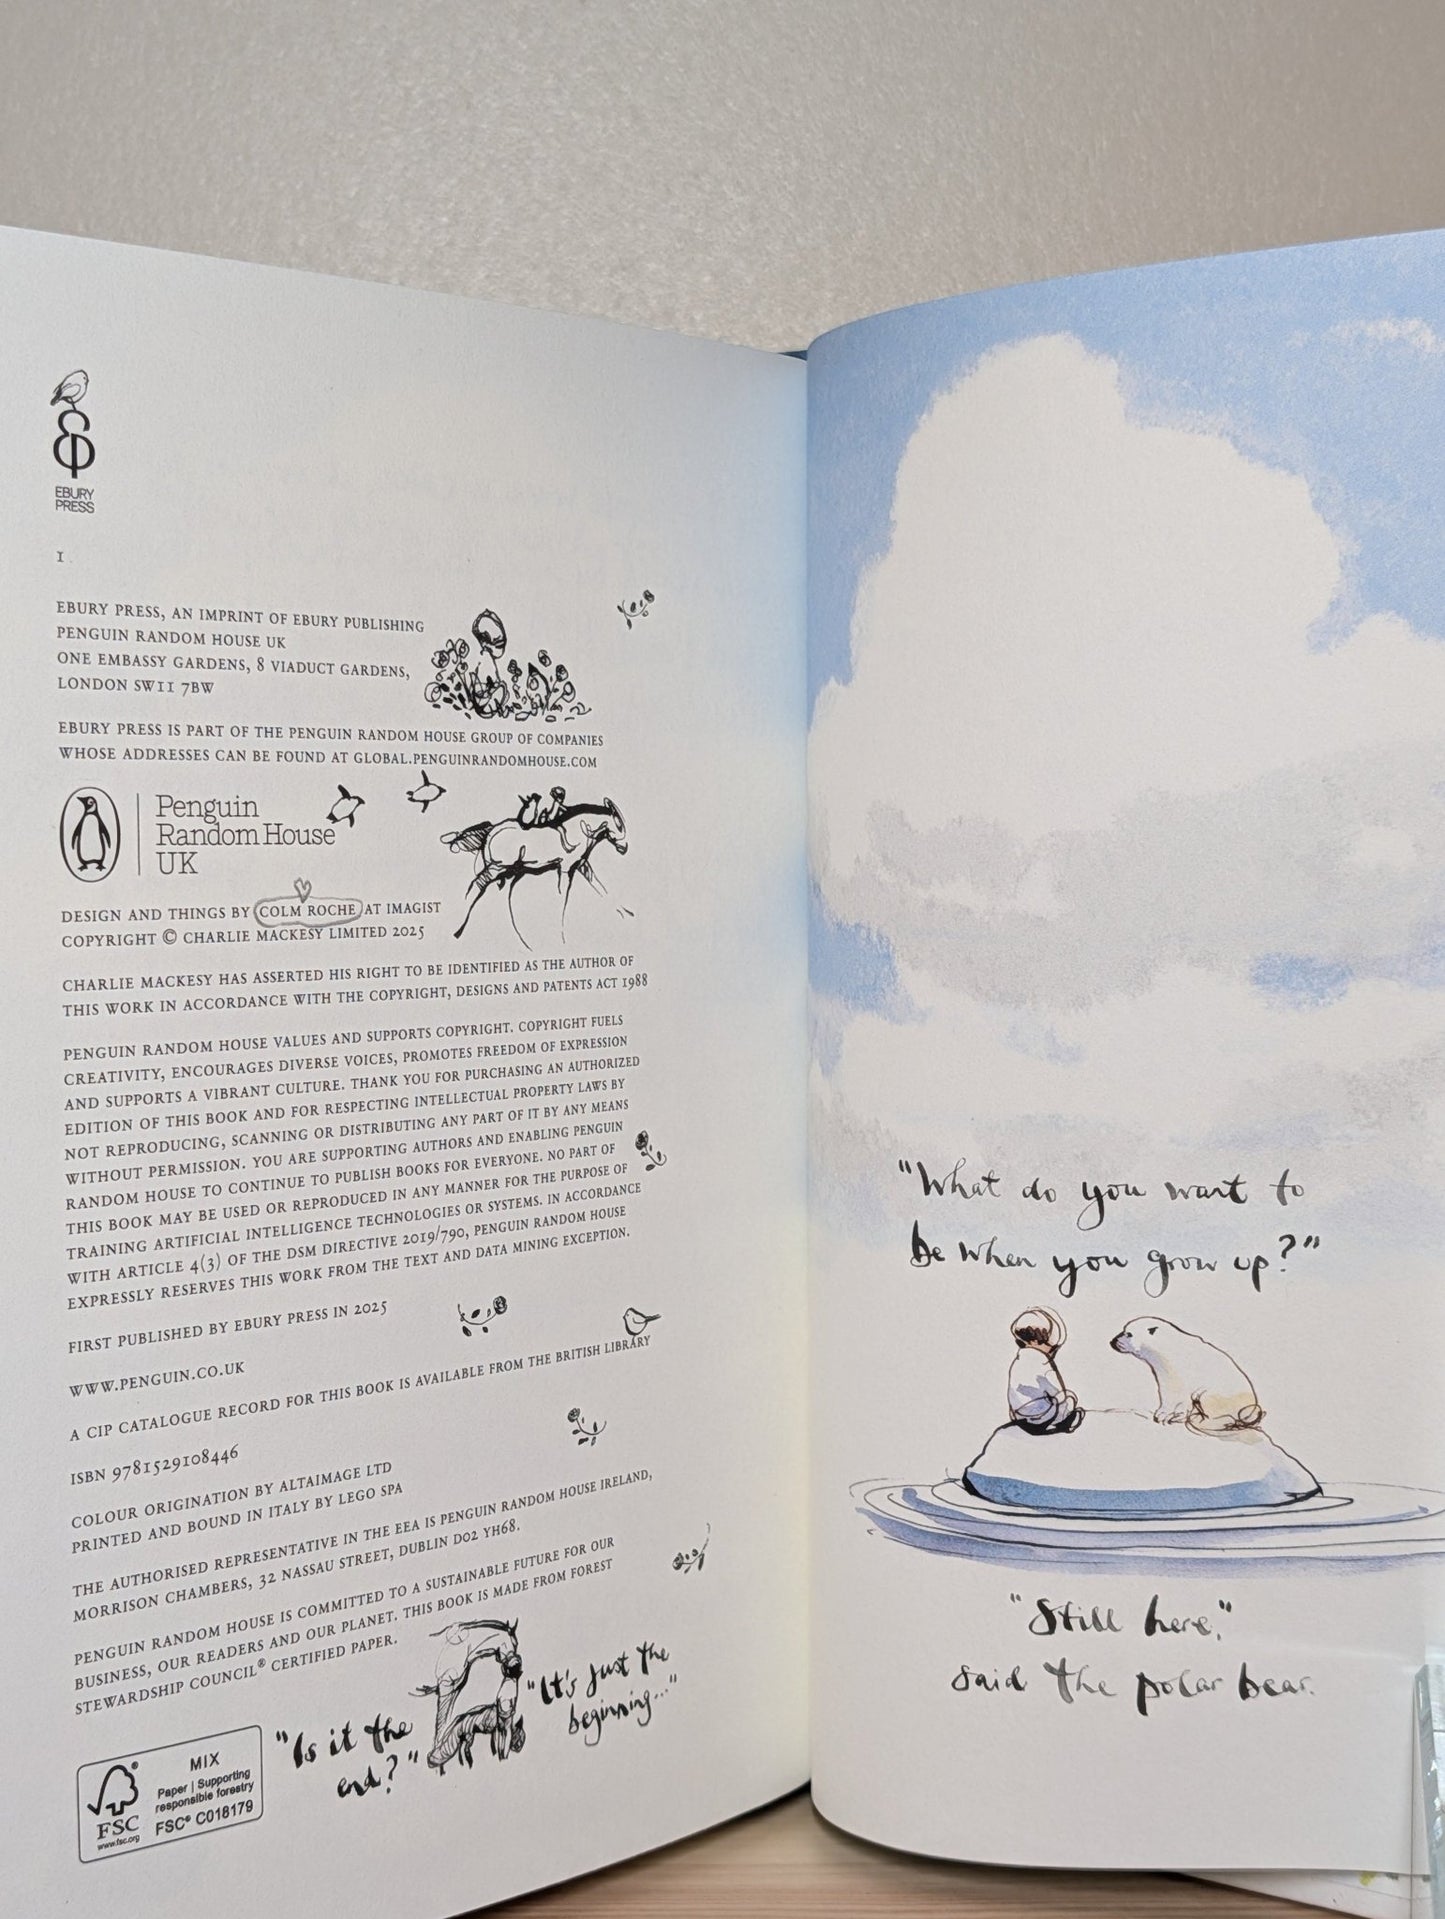 EBURY
PRESS
1
EBURY PRESS, AN IMPRINT OF EBURY PUBLISHING
PENGUIN RANDOM HOUSE UK
ONE EMBASSY GARDENS, 8 VIADUCT GARDENS,
LONDON SW11 7BW
EBURY PRESS IS PART OF THE PENGUIN RANDOM HOUSE GROUP OF COMPANIES
WHOSE ADDRESSES CAN BE FOUND AT GLOBAL.PENGUINRANDOMHOUSE.COM
Penguin
Random House
UK
DESIGN AND THINGS BY COLM ROCHE AT IMAGIST
COPYRIGHT © CHARLIE MACKESY LIMITED 2025
CHARLIE MACKESY HAS ASSERTED HIS RIGHT TO BE IDENTIFIED AS THE AUTHOR OF
THIS WORK IN ACCORDANCE WITH THE COPYRIGHT, DESIGNS AND PATENTS ACT 1988
PENGUIN RANDOM HOUSE VALUES AND SUPPORTS COPYRIGHT. COPYRIGHT FUELS
CREATIVITY, ENCOURAGES DIVERSE VOICES, PROMOTES FREEDOM OF EXPRESSION
AND SUPPORTS A VIBRANT CULTURE. THANK YOU FOR PURCHASING AN AUTHORIZED
EDITION OF THIS BOOK AND FOR RESPECTING INTELLECTUAL PROPERTY LAWS BY
NOT REPRODUCING, SCANNING OR DISTRIBUTING ANY PART OF IT BY ANY MEANS
WITHOUT PERMISSION. YOU ARE SUPPORTING AUTHORS AND ENABLING PENGUIN
RANDOM HOUSE TO CONTINUE TO PUBLISH BOOKS FOR EVERYONE. NO PART OF
THIS BOOK MAY BE USED OR REPRODUCED IN ANY MANNER FOR THE PURPOSE OF
TRAINING ARTIFICIAL INTELLIGENCE TECHNOLOGIES OR SYSTEMS. IN ACCORDANCE
WITH ARTICLE 4(3) OF THE DSM DIRECTIVE 2019/790, PENGUIN RANDOM HOUSE
EXPRESSLY RESERVES THIS WORK FROM THE TEXT AND DATA MINING EXCEPTION.
FIRST PUBLISHED BY EBURY PRESS IN 2025
WWW.PENGUIN.CO.UK
A CIP CATALOGUE RECORD FOR THIS BOOK IS AVAILABLE FROM THE BRITISH LIBRARY
ISBN 9781529108446
COLOUR ORIGINATION BY ALTAIMAGE LTD
PRINTED AND BOUND IN ITALY BY LEGO SPA
THE AUTHORISED REPRESENTATIVE IN THE EEA IS PENGUIN RANDOM HOUSE IRELAND,
MORRISON CHAMBERS, 32 NASSAU STREET, DUBLIN D02 YH68.
PENGUIN RANDOM HOUSE IS COMMITTED TO A SUSTAINABLE FUTURE FOR OUR
BUSINESS, OUR READERS AND OUR PLANET. THIS BOOK IS MADE FROM FOREST
STEWARDSHIP COUNCIL® CERTIFIED PAPER.
FSC
www.fsc.org
MIX
Paper | Supporting
responsible forestry
FSC® C018179
"Is it the
end?"
"It's just the
beginning..."
"What do you want to
be when you grow up?"
"Still here,"
said the polar bear.